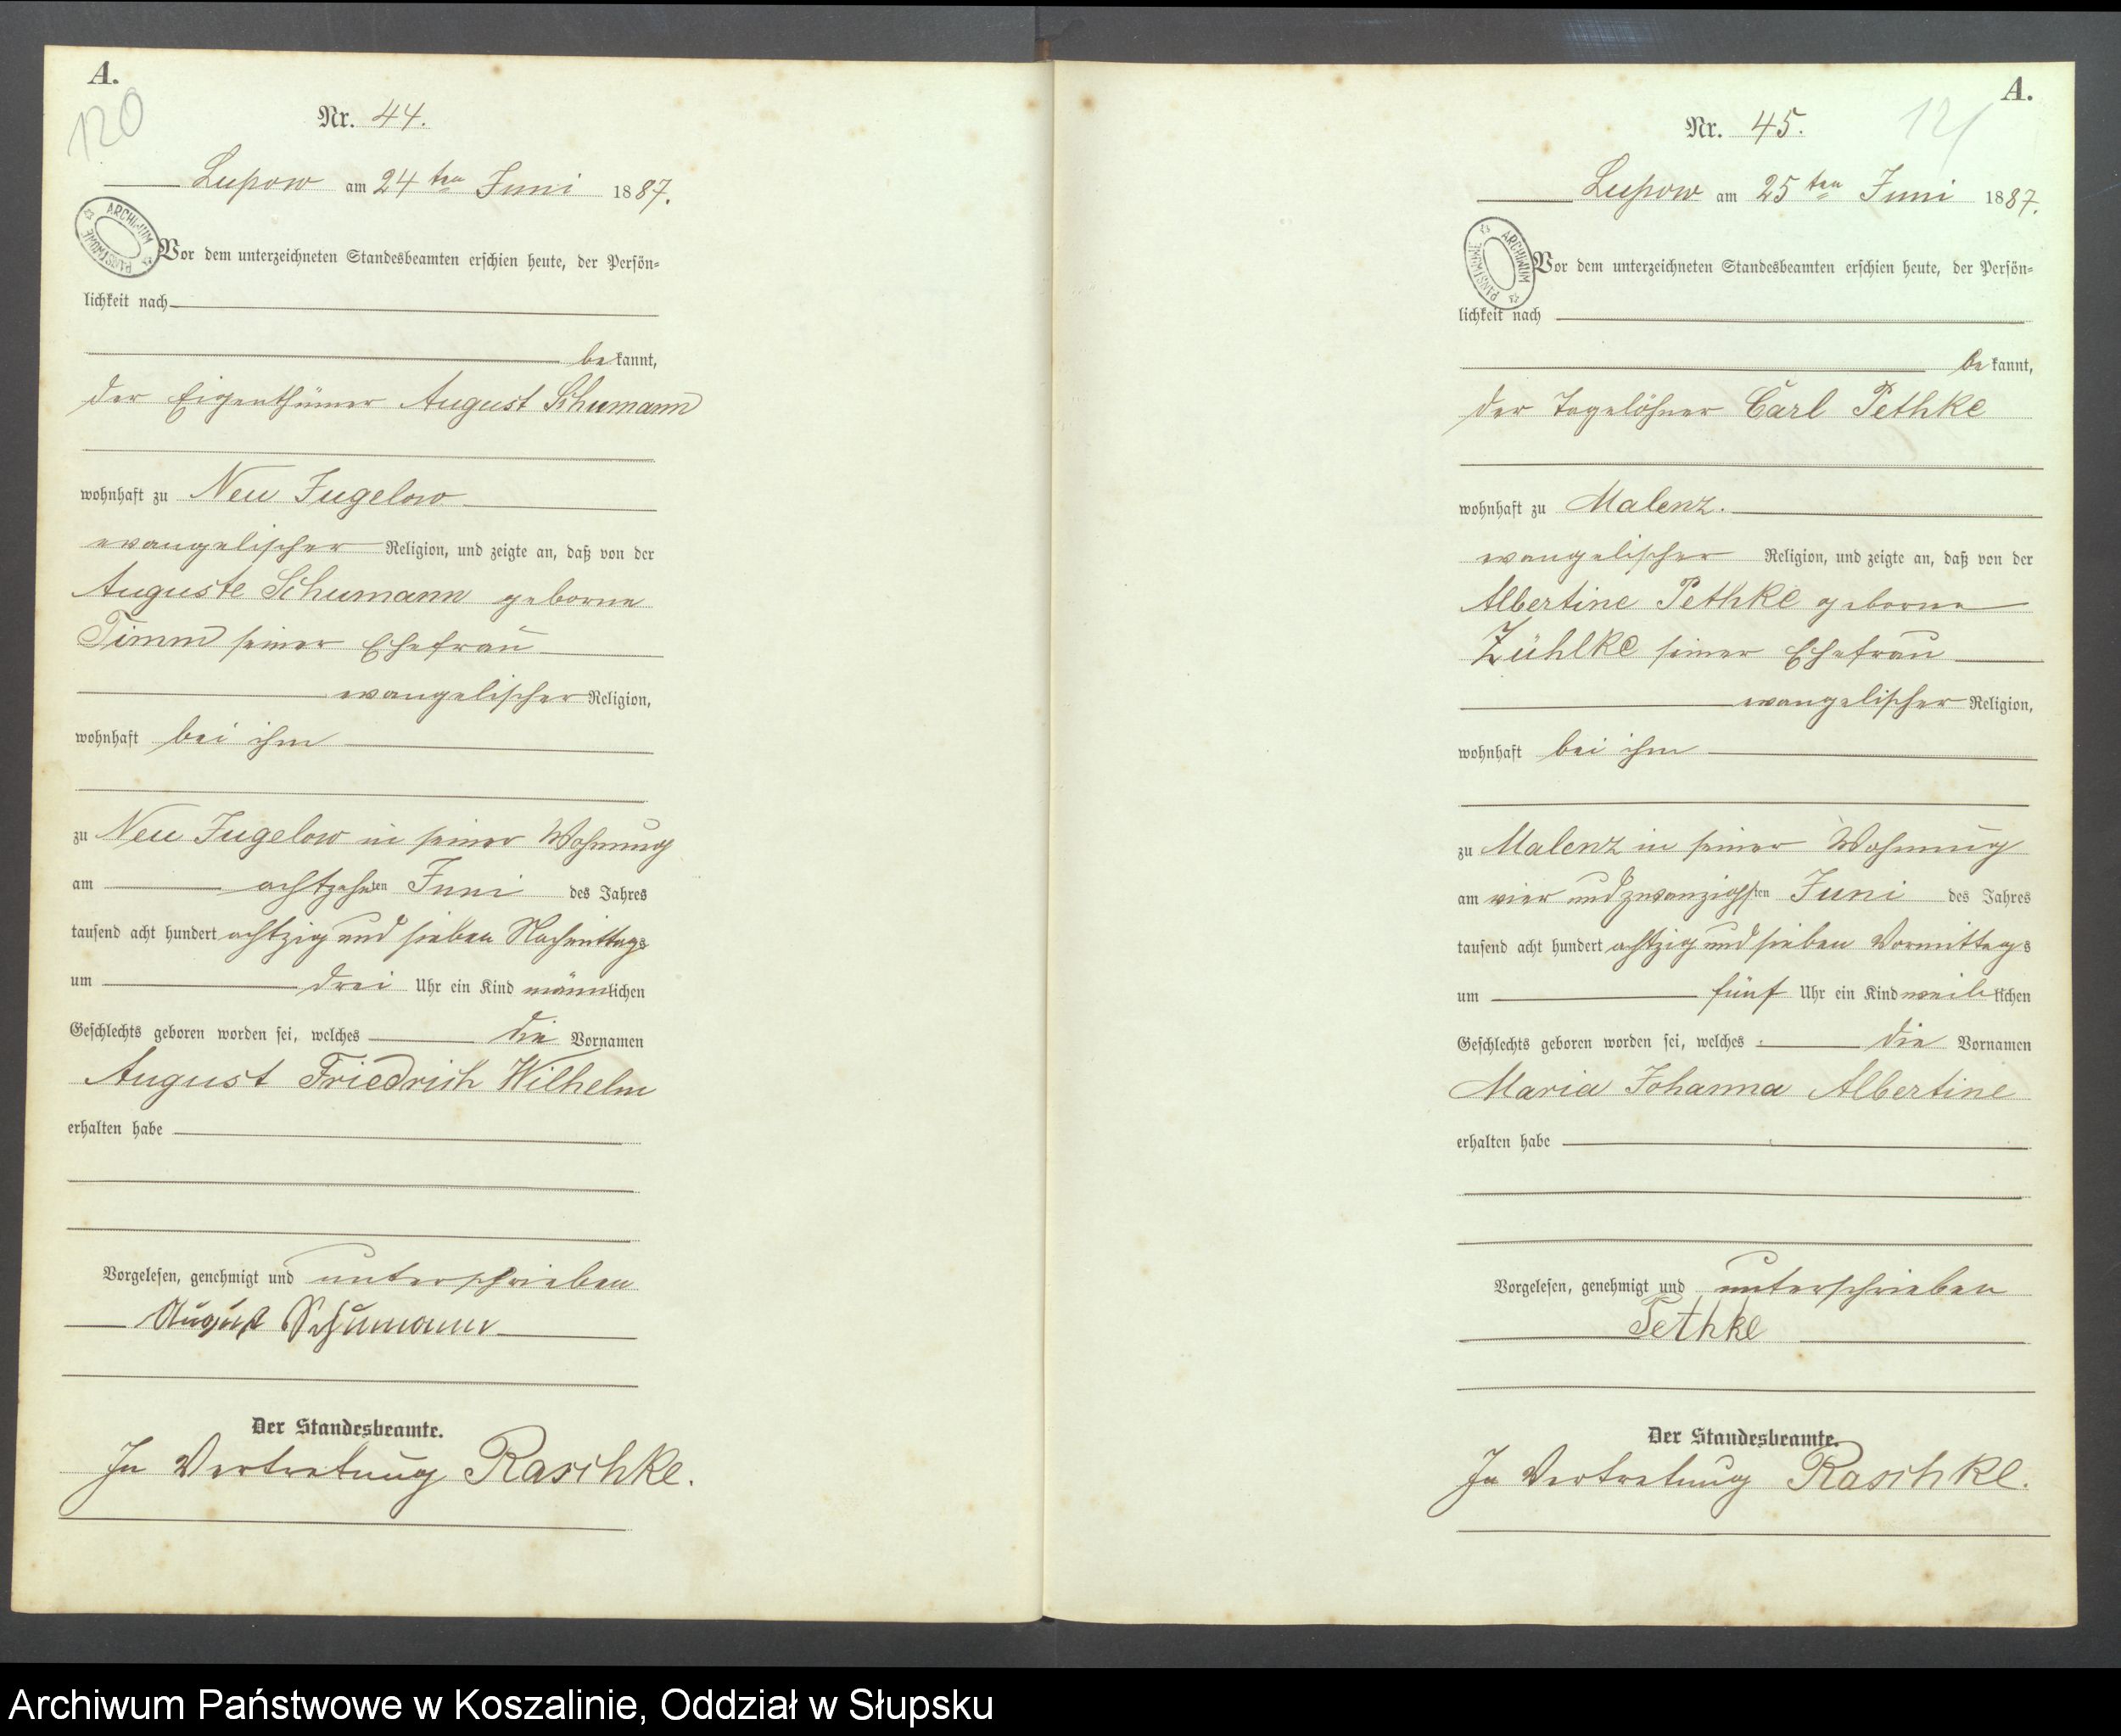 A.
120
Nr. 44.
Lupow am 24ten Juni 1887.
ARCHIWUM PAŃSTWOWE
Vor dem unterzeichneten Standesbeamten erschien heute, der Persön-
lichkeit nach
bekannt,
der Eigenthümer August Schumann
wohnhaft zu Neu Jugelow
evangelischer Religion, und zeigte an, daß von der
Auguste Schumann geborne
Timm seiner Ehefrau
evangelischer Religion,
wohnhaft bei ihm
zu Neu Jugelow in seiner Wohnung
am achtzehnten Juni des Jahres
tausend acht hundert achtzig und sieben Nachmittags
um drei Uhr ein Kind männlichen
Geschlechts geboren worden sei, welches die Vornamen
August Friedrich Wilhelm
erhalten habe
Vorgelesen, genehmigt und unterschrieben
August Schumann
Der Standesbeamte.
In Vertretung Raschke.
A.
121
Nr. 45.
Lupow am 25ten Juni 1887.
ARCHIWUM PAŃSTWOWE
Vor dem unterzeichneten Standesbeamten erschien heute, der Persön-
lichkeit nach
bekannt,
der Tagelöhner Carl Pethke
wohnhaft zu Malenz.
evangelischer Religion, und zeigte an, daß von der
Albertine Pethke geborne
Zühlke seiner Ehefrau
evangelischer Religion,
wohnhaft bei ihm
zu Malenz in seiner Wohnung
am vier und zwanzigsten Juni des Jahres
tausend acht hundert achtzig und sieben Vormittags
um fünf Uhr ein Kind weiblichen
Geschlechts geboren worden sei, welches die Vornamen
Maria Johanna Albertine
erhalten habe
Vorgelesen, genehmigt und unterschrieben
Pethke
Der Standesbeamte.
In Vertretung Raschke.
Archiwum Państwowe w Koszalinie, Oddział w Słupsku